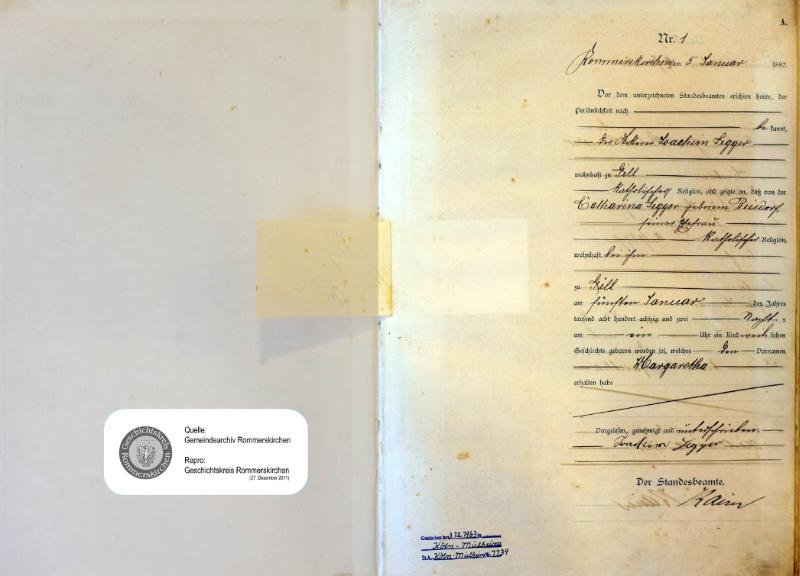 A.
Nr. 1
Rommerskirchen am 5 Januar 1882
Vor dem unterzeichneten Standesbeamten erschien heute, der
Persönlichkeit nach
be kannt,
der Joachim Segger
wohnhaft zu Gill
katholischer Religion, und zeigte an, daß von der
Catharina Segger geborene Reisdorf
seiner Ehefrau
katholischer Religion,
wohnhaft bei ihm
zu Gill
am fünften Januar des Jahres
tausend acht hundert achtzig und zwei Nachts
um ein Uhr ein Kind weiblichen
Geschlechts geboren worden sei, welches den Vornamen
Margaretha
erhalten habe
Vorgelesen, genehmigt und unterschrieben.
Joachim Segger
Der Standesbeamte.
Kaiser
Geschichtskreis
Rommerskirchen
Quelle:
Gemeindearchiv Rommerskirchen
Repro:
Geschichtskreis Rommerskirchen
(27. Dezember 2011)
Gestorben am 3.12.1963 in
Köln - Mülheim
St.A. Köln-Mülheim